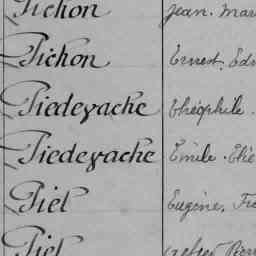 Pichon Jean. Mar
Pichon Ernest. Edm
Piedevache Théophile.
Piedevache Émile. Elie
Piel Eugène. Fr
Piel